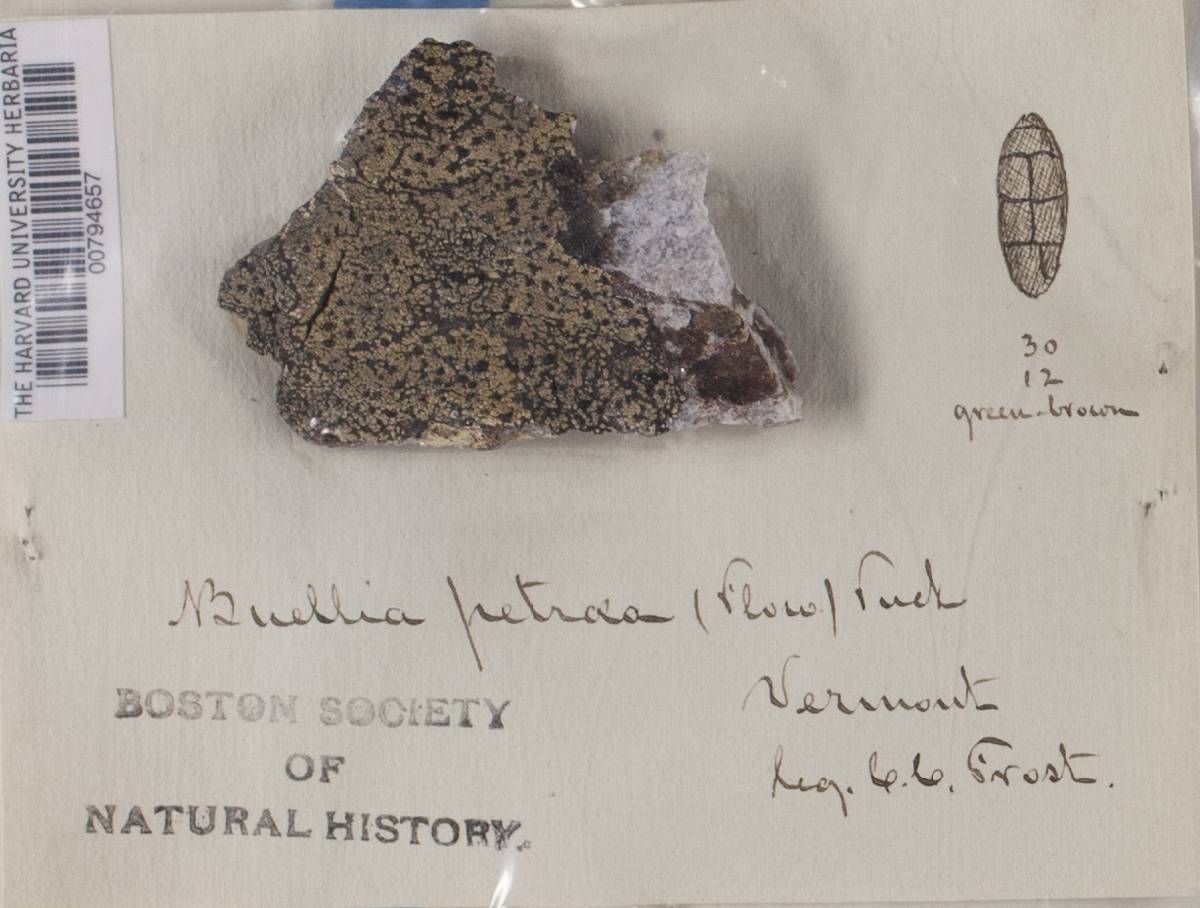 THE HARVARD UNIVERSITY HERBARIA
00794657
30
12
green-brown
Buellia petraea (Flow) Tuck
Vermont
leg. C.C. Frost.
BOSTON SOCIETY
OF
NATURAL HISTORY.